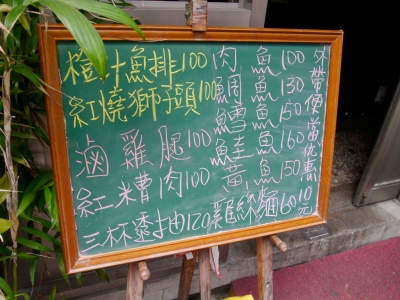 橙汁魚排100
紅燒獅子頭100
滷雞腿100
紅糟肉100
三杯透抽120
肉魚100
鯛魚130
鱈魚150
鮭魚160
黃魚150
雞絲麵60
外帶便當优惠10元